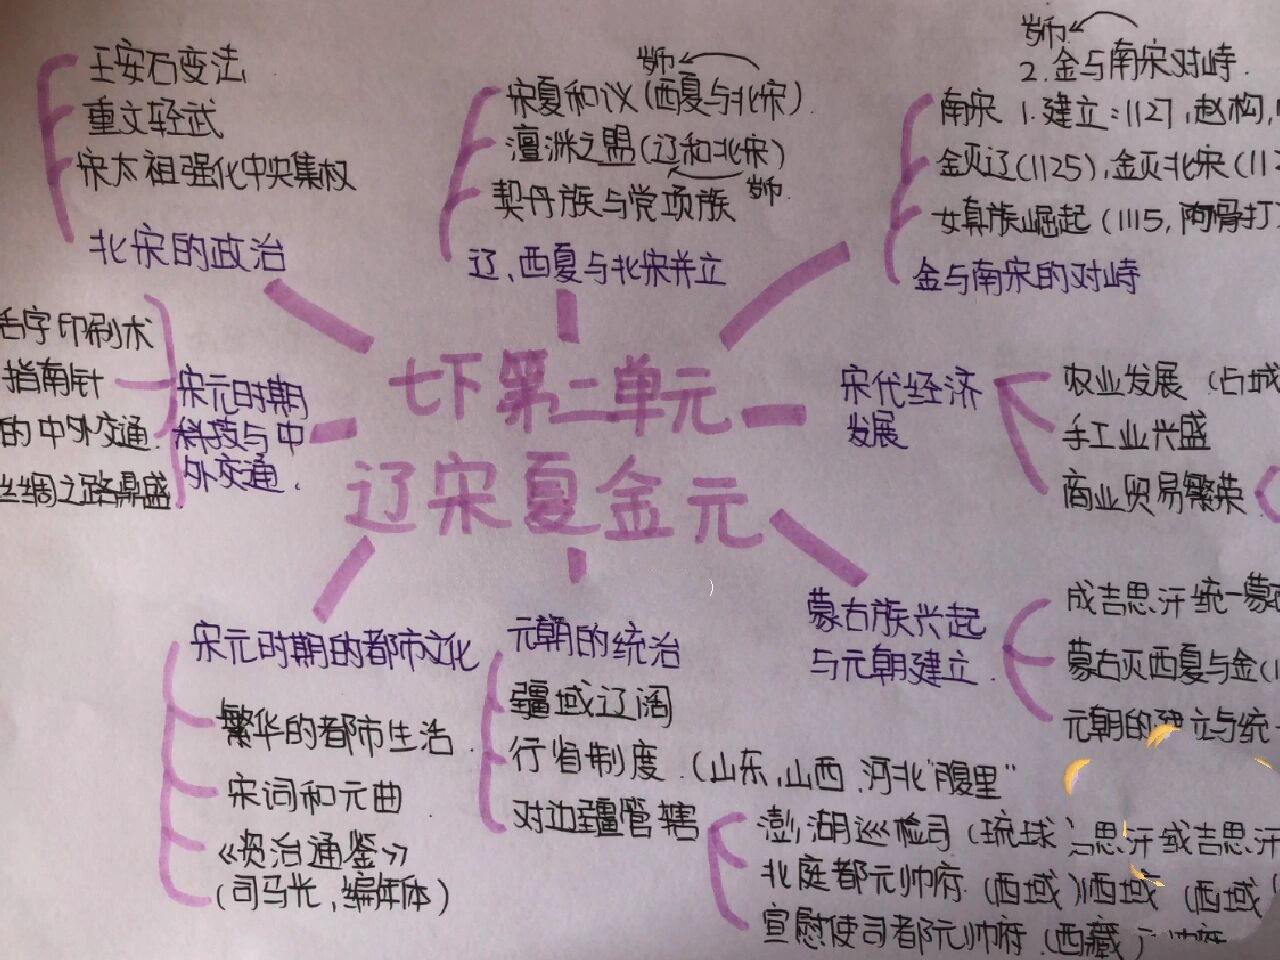 七下第二单元
辽宋夏金元
王安石变法
重文轻武
宋太祖强化中央集权
北宋的政治
岁币
宋夏和议(西夏与北宋).
澶渊之盟(辽和北宋)
岁币.
契丹族与党项族
辽、西夏与北宋并立
岁币
2.金与南宋对峙.
南宋 1.建立:1127,赵构,
金灭辽(1125),金灭北宋(112
女真族崛起(1115,阿骨打
金与南宋的对峙
活字印刷术
指南针
的中外交通.
丝绸之路鼎盛
宋元时期
科技与中
外交通.
宋代经济
发展
农业发展 (占城
手工业兴盛
商业贸易繁荣
蒙古族兴起
与元朝建立.
成吉思汗统一蒙古
蒙古灭西夏与金(1
元朝的建立与统一
宋元时期的都市文化
繁华的都市生活.
宋词和元曲
《资治通鉴》
(司马光,编年体)
元朝的统治
疆域辽阔
行省制度.(山东,山西.河北"腹里"
对边疆管辖
澎湖巡检司(琉球 思汗 成吉思汗
北庭都元帅府.(西域)西域 (西域
宣慰使司都元帅府.(西藏)